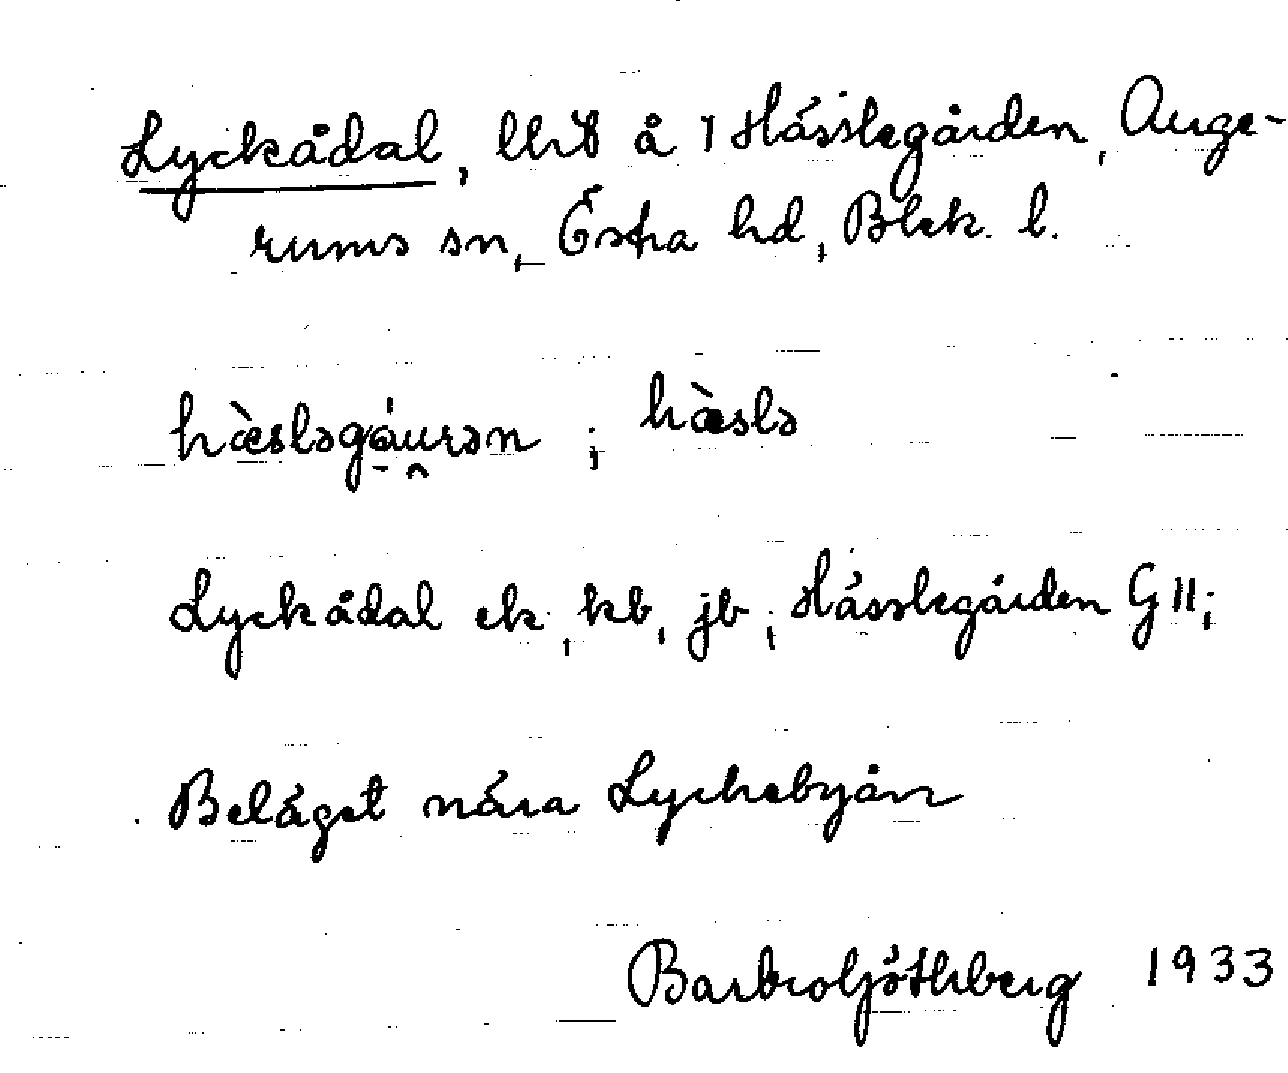 Lyckådal, lht å 1 Hässlegården, Auge-
rums sn, Östra hd, Blek. l.
hæ̀sləgáu̯rən ; hæ̀slə
Lyckådal ek, kb, jb; Hässlegården G 11;
Beläget nära Lyckebyån
Barbro Göthberg 1933